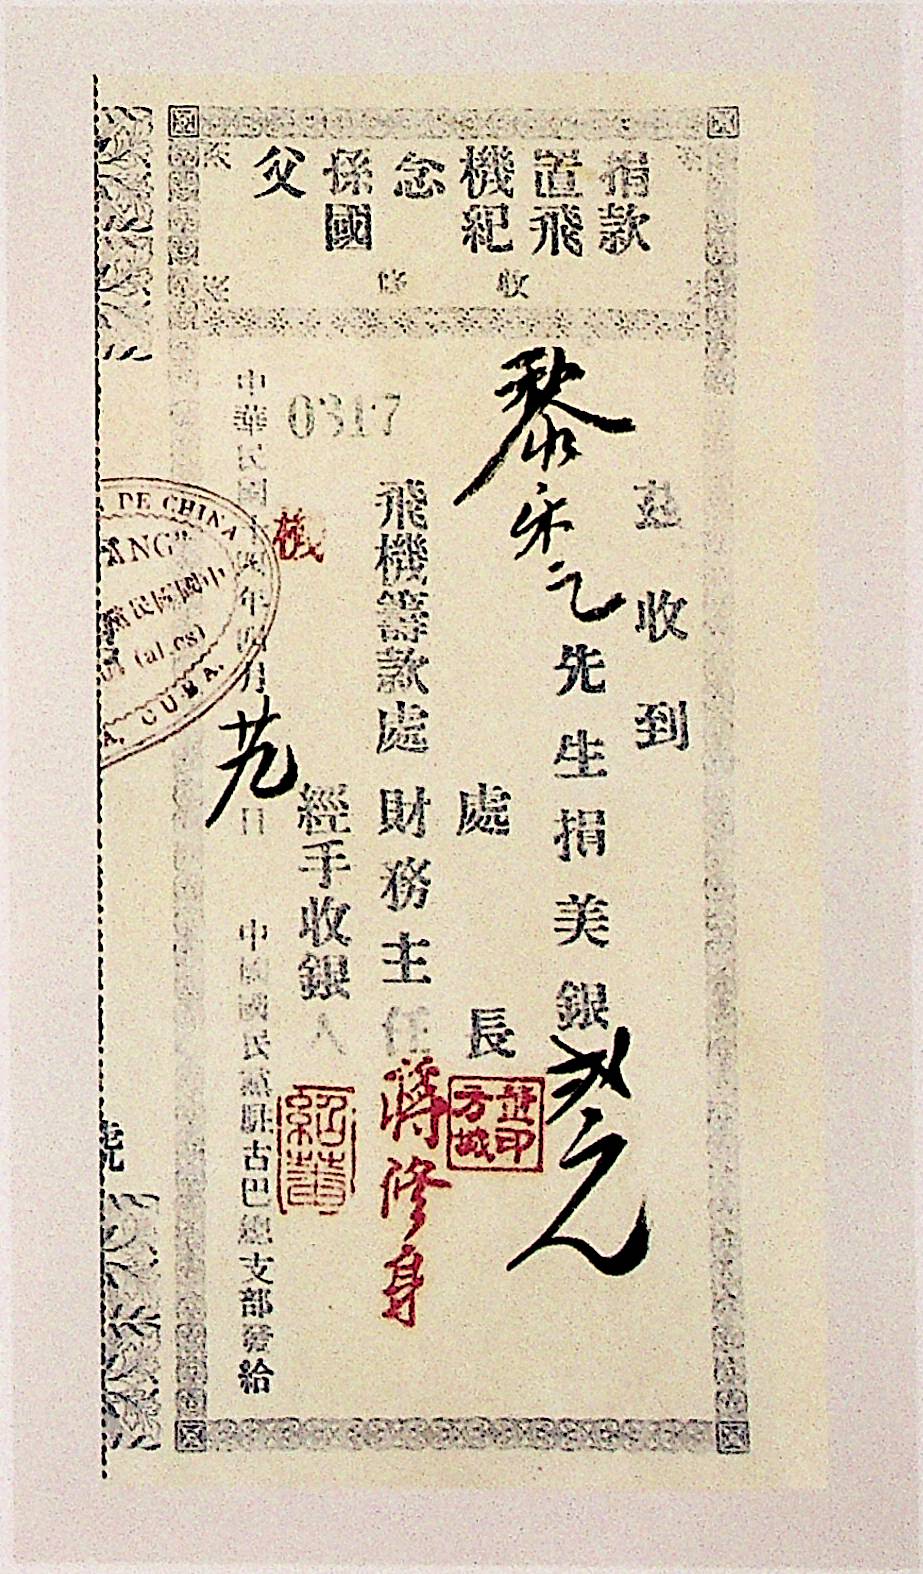 捐款置飛機紀念孫國父
收條
茲收到
黎 先生捐美銀 元
處長
飛機籌款處 財務主任 蔣修身
經手收銀人
機
0317
中華民國 年四月廿九日 中國國民黨駐古巴總支部發給
DE CHINA
ANG"
中國國民黨
(al.es)
A, CUBA.
號